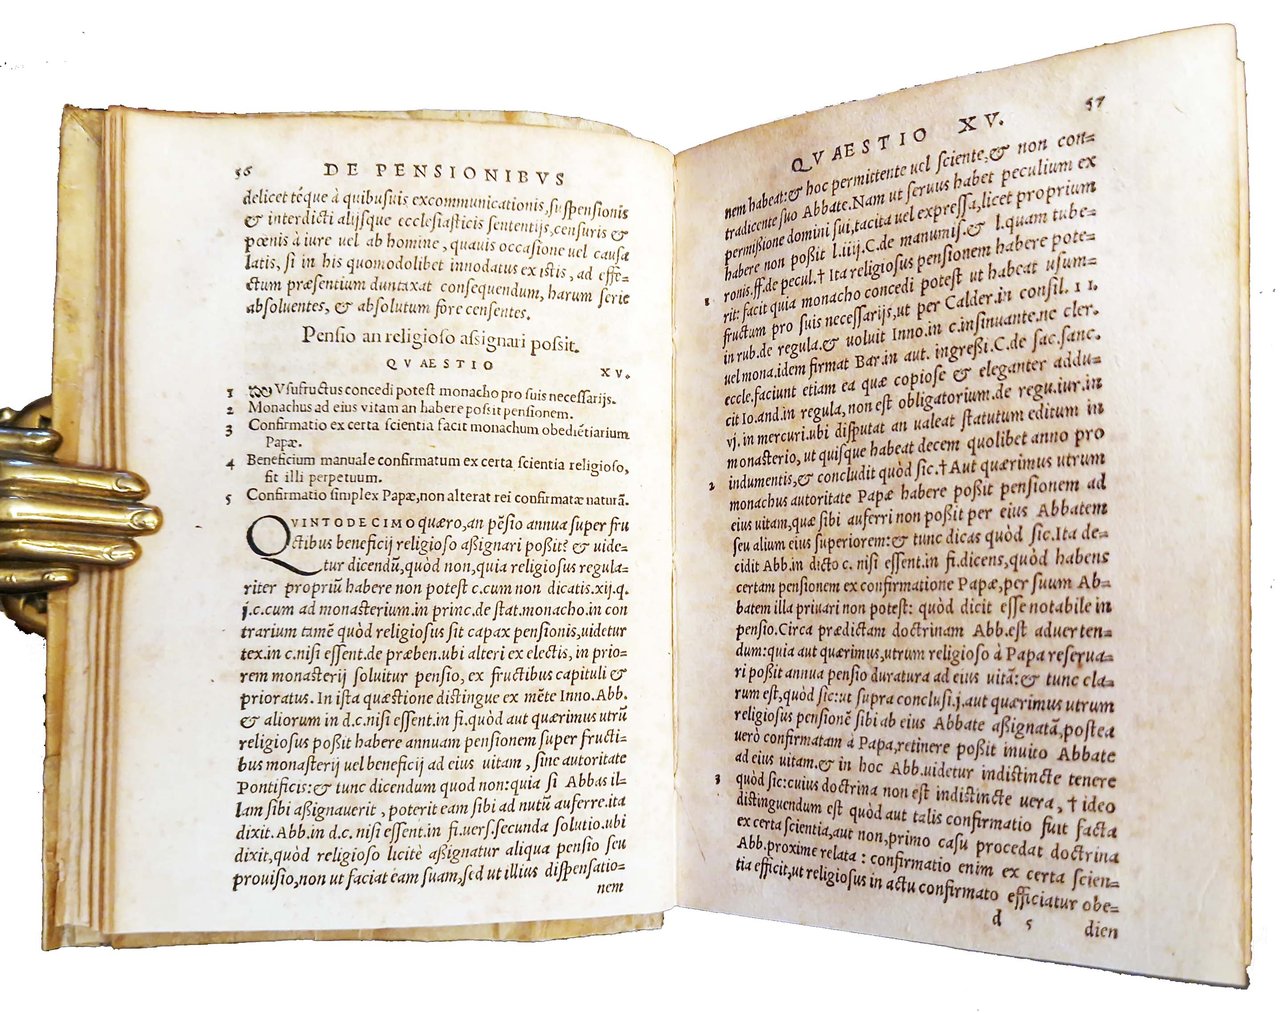 56 DE PENSIONIBVS
delicet téque à quibusuis excommunicationis, suspensionis
& interdicti alijsque ecclesiasticis sententijs, censuris &
pœnis à iure uel ab homine, quauis occasione uel causa
latis, si in his quomodolibet innodatus existis, ad effe-
ctum præsentium duntaxat consequendum, harum serie
absoluentes, & absolutum fore censentes.
Pensio an religioso assignari possit.
QVAESTIO XV.
1 Vsufructus concedi potest monacho pro suis necessarijs.
2 Monachus ad eius vitam an habere possit pensionem.
3 Confirmatio ex certa scientia facit monachum obediẽtiarium
Papæ.
4 Beneficium manuale confirmatum ex certa scientia religioso,
fit illi perpetuum.
5 Confirmatio simplex Papæ, non alterat rei confirmatæ naturã.
QVINTODECIMO quæro, an pẽsio annua super fru
ctibus beneficij religioso assignari possit? & uide-
tur dicendũ, quòd non, quia religiosus regula-
riter propriũ habere non potest c.cum non dicatis.xij.q.
j.c.cum ad monasterium.in princ.de stat.monacho.in con
trarium tamẽ quòd religiosus sit capax pensionis, uidetur
tex.in c.nisi essent.de præben.ubi alteri ex electis, in prio-
rem monasterij soluitur pensio, ex fructibus capituli &
prioratus. In ista quæstione distingue ex mẽte Inno.Abb.
& aliorum in d.c.nisi essent.in fi.quòd aut quærimus utrũ
religiosus possit habere annuam pensionem super fructi-
bus monasterij uel beneficij ad eius uitam, sine autoritate
Pontificis: & tunc dicendum quod non: quia si Abbas il-
lam sibi assignauerit, poterit eam sibi ad nutũ auferre.ita
dixit.Abb.in d.c. nisi essent.in fi.uers.secunda solutio.ubi
dixit, quòd religioso licitè assignatur aliqua pensio seu
prouisio, non ut faciat eam suam, sed ut illius dispensatio-
nem
QVAESTIO XV. 57
nem habeat: & hoc permittente uel sciente, & non con-
tradicente suo Abbate. Nam ut seruus habet peculium ex
permissione domini sui, tacita uel expressa, licet proprium
habere non possit l.iiij.C.de manumis. & l.quam tube-
ronis.ff.de pecul.† Ita religiosus pensionem habere pote-
1 rit: facit quia monacho concedi potest ut habeat usum-
fructum pro suis necessarijs, ut per Calder.in consil. 11.
in rub.de regula. & uoluit Inno.in c.insinuante.ne cler.
uel mona.idem firmat Bar.in aut. ingressi.C.de sac.sanc.
eccle.faciunt etiam ea quæ copiose & eleganter addu-
cit Io.and.in regula, non est obligatorium.de regu.iur.in
vj. in mercuri.ubi disputat an ualeat statutum editum in
monasterio, ut quisque habeat decem quolibet anno pro
2 indumentis, & concludit quòd sic.† Aut quærimus utrum
monachus autoritate Papæ habere possit pensionem ad
eius uitam, quæ sibi auferri non possit per eius Abbatem
seu alium eius superiorem: & tunc dicas quòd sic. Ita de-
cidit Abb.in dicto c. nisi essent.in fi.dicens, quòd habens
certam pensionem ex confirmatione Papæ, per suum Ab-
batem illa priuari non potest: quòd dicit esse notabile in
pensio. Circa prædictam doctrinam Abb.est aduerten-
dum: quia aut quærimus, utrum religioso à Papa reserua-
ri possit annua pensio duratura ad eius uitã: & tunc cla-
rum est, quòd sic: ut supra conclusi.j.aut quærimus utrum
religiosus pensionẽ sibi ab eius Abbate assignatã, postea
uerò confirmatam à Papa, retinere possit inuito Abbate
ad eius uitam. & in hoc Abb.uidetur indistincte tenere
3 quòd sic: cuius doctrina non est indistincte uera, † ideo
distinguendum est quòd aut talis confirmatio fuit facta
ex certa scientia, aut non, primo casu procedat doctrina
Abb.proxime relata : confirmatio enim ex certa scien-
tia efficit, ut religiosus in actu confirmato efficiatur obe-
d 5 dien